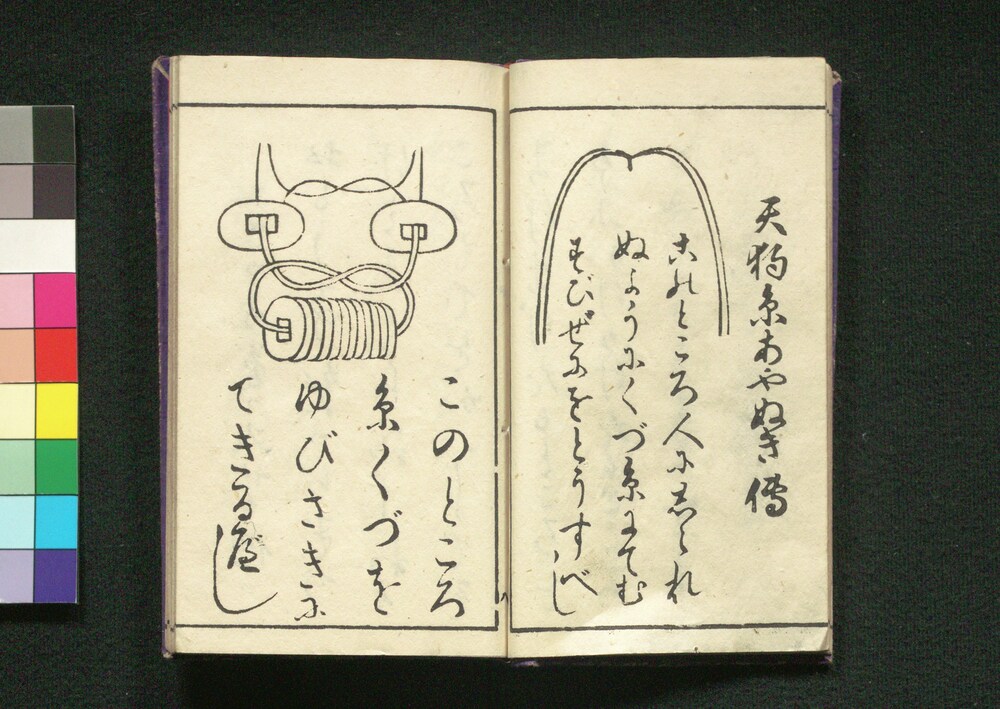 天狗糸あやぬき傳
このところ人にしられ
ぬようにくづ糸にてむ
すびぜにをとうすべし
このところ
糸くづを
ゆびさきに
てきるべし